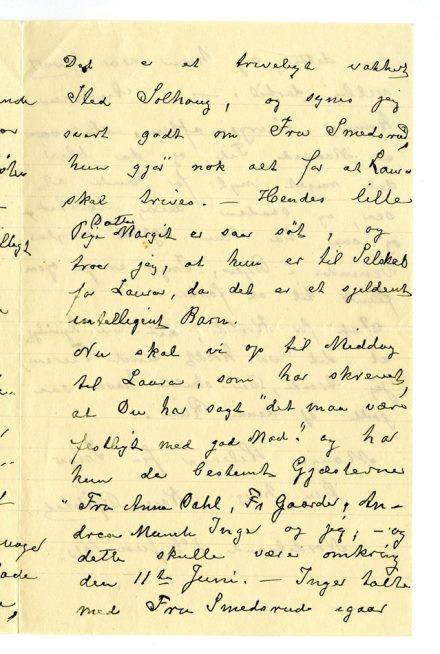 Det er et triveligt vakkert
Sted Solhaug, og synes jeg
svært godt om Fru Smedsrud,
hun gjør nok alt for at Laura
skal trives. – Hendes lille
Datter
Pige Margit er saa søt, og
troer jeg, at hun er til Selskab
for Laura, da det er et sjeldent
intelligent Barn.
Nu skal vi op til Middag
til Laura, som har skrevet,
at Du har sagt "det maa være
festligt med god Mad." og har
hun da bestemt Gjæsterne
"Fru Anna Dahl, Fr Gaarder, An-
drea Munch Inger og jeg, – og
dette skulle være omkring
den 11te Juni. – Inger talte
med Fru Smedsrude igaar